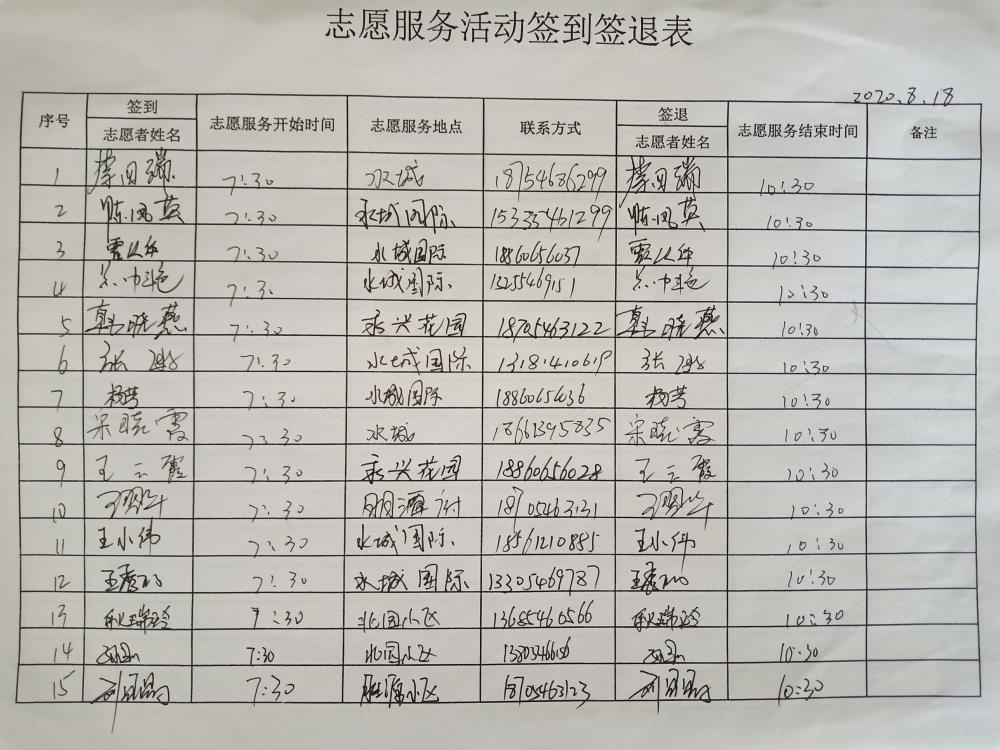 志愿服务活动签到签退表
2020.8.18
序号 签到 志愿服务开始时间 志愿服务地点 联系方式 签退 志愿服务结束时间 备注
志愿者姓名 志愿者姓名
1 7:30 水城 18754686299 10:30
2 陈凤英 7:30 水城国际 15335461299 陈凤英 10:30
3 7:30 水城国际 18860656037 10:30
4 7:30 水城国际 13255469151 10:30
5 韩晓燕 7:30 永兴花园 18705463122 韩晓燕 10:30
6 张 7:30 水城国际 13181410619 张 10:30
7 杨芳 7:30 水城国际 18860656036 杨芳 10:30
8 宋晓霞 7:30 水城 18661395835 宋晓霞 10:30
9 王云霞 7:30 永兴花园 18860656028 王云霞 10:30
10 7:30 18705463131 10:30
11 王小伟 7:30 水城国际 18561210885 王小伟 10:30
12 7:30 水城国际 13305469787 10:30
13 7:30 北园小区 13685460566 10:30
14 7:30 北园小区 10:30
15 7:30 小区 18705463123 10:30